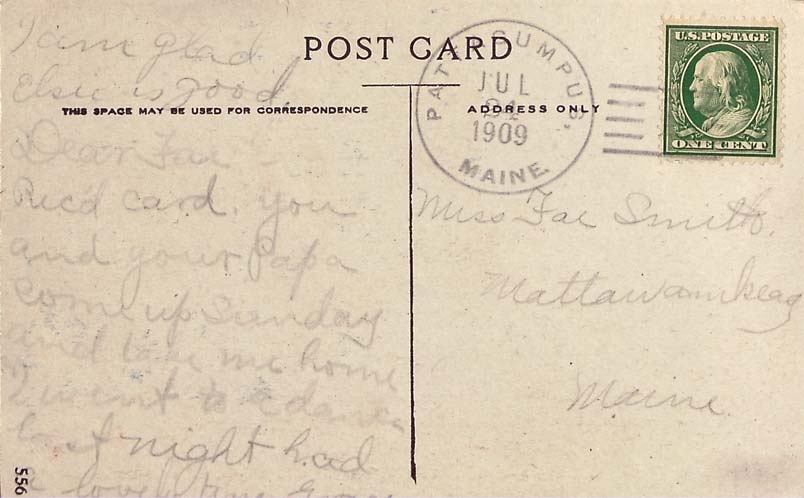 I am glad
Elsie is good.
POST CARD
THIS SPACE MAY BE USED FOR CORRESPONDENCE
Dear Fae
Rec'd card. you
and your Papa
come up Sunday
and take me home
I went to a dance
last night had
a lovely time
556
ADDRESS ONLY
PATTAGUMPUS,
JUL
1909
MAINE
U.S. POSTAGE
ONE CENT
Miss Fae Smith.
Mattawamkeag
Maine